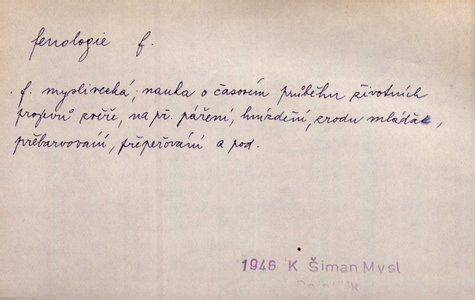 fenologie f.
f. myslivecká; nauka o časovém průběhu životních
projevů zvěře, na př. páření, hníždění, zrodu mláďat,
přebarvování, přepeřování a pod.
1946 K Šiman Mysl